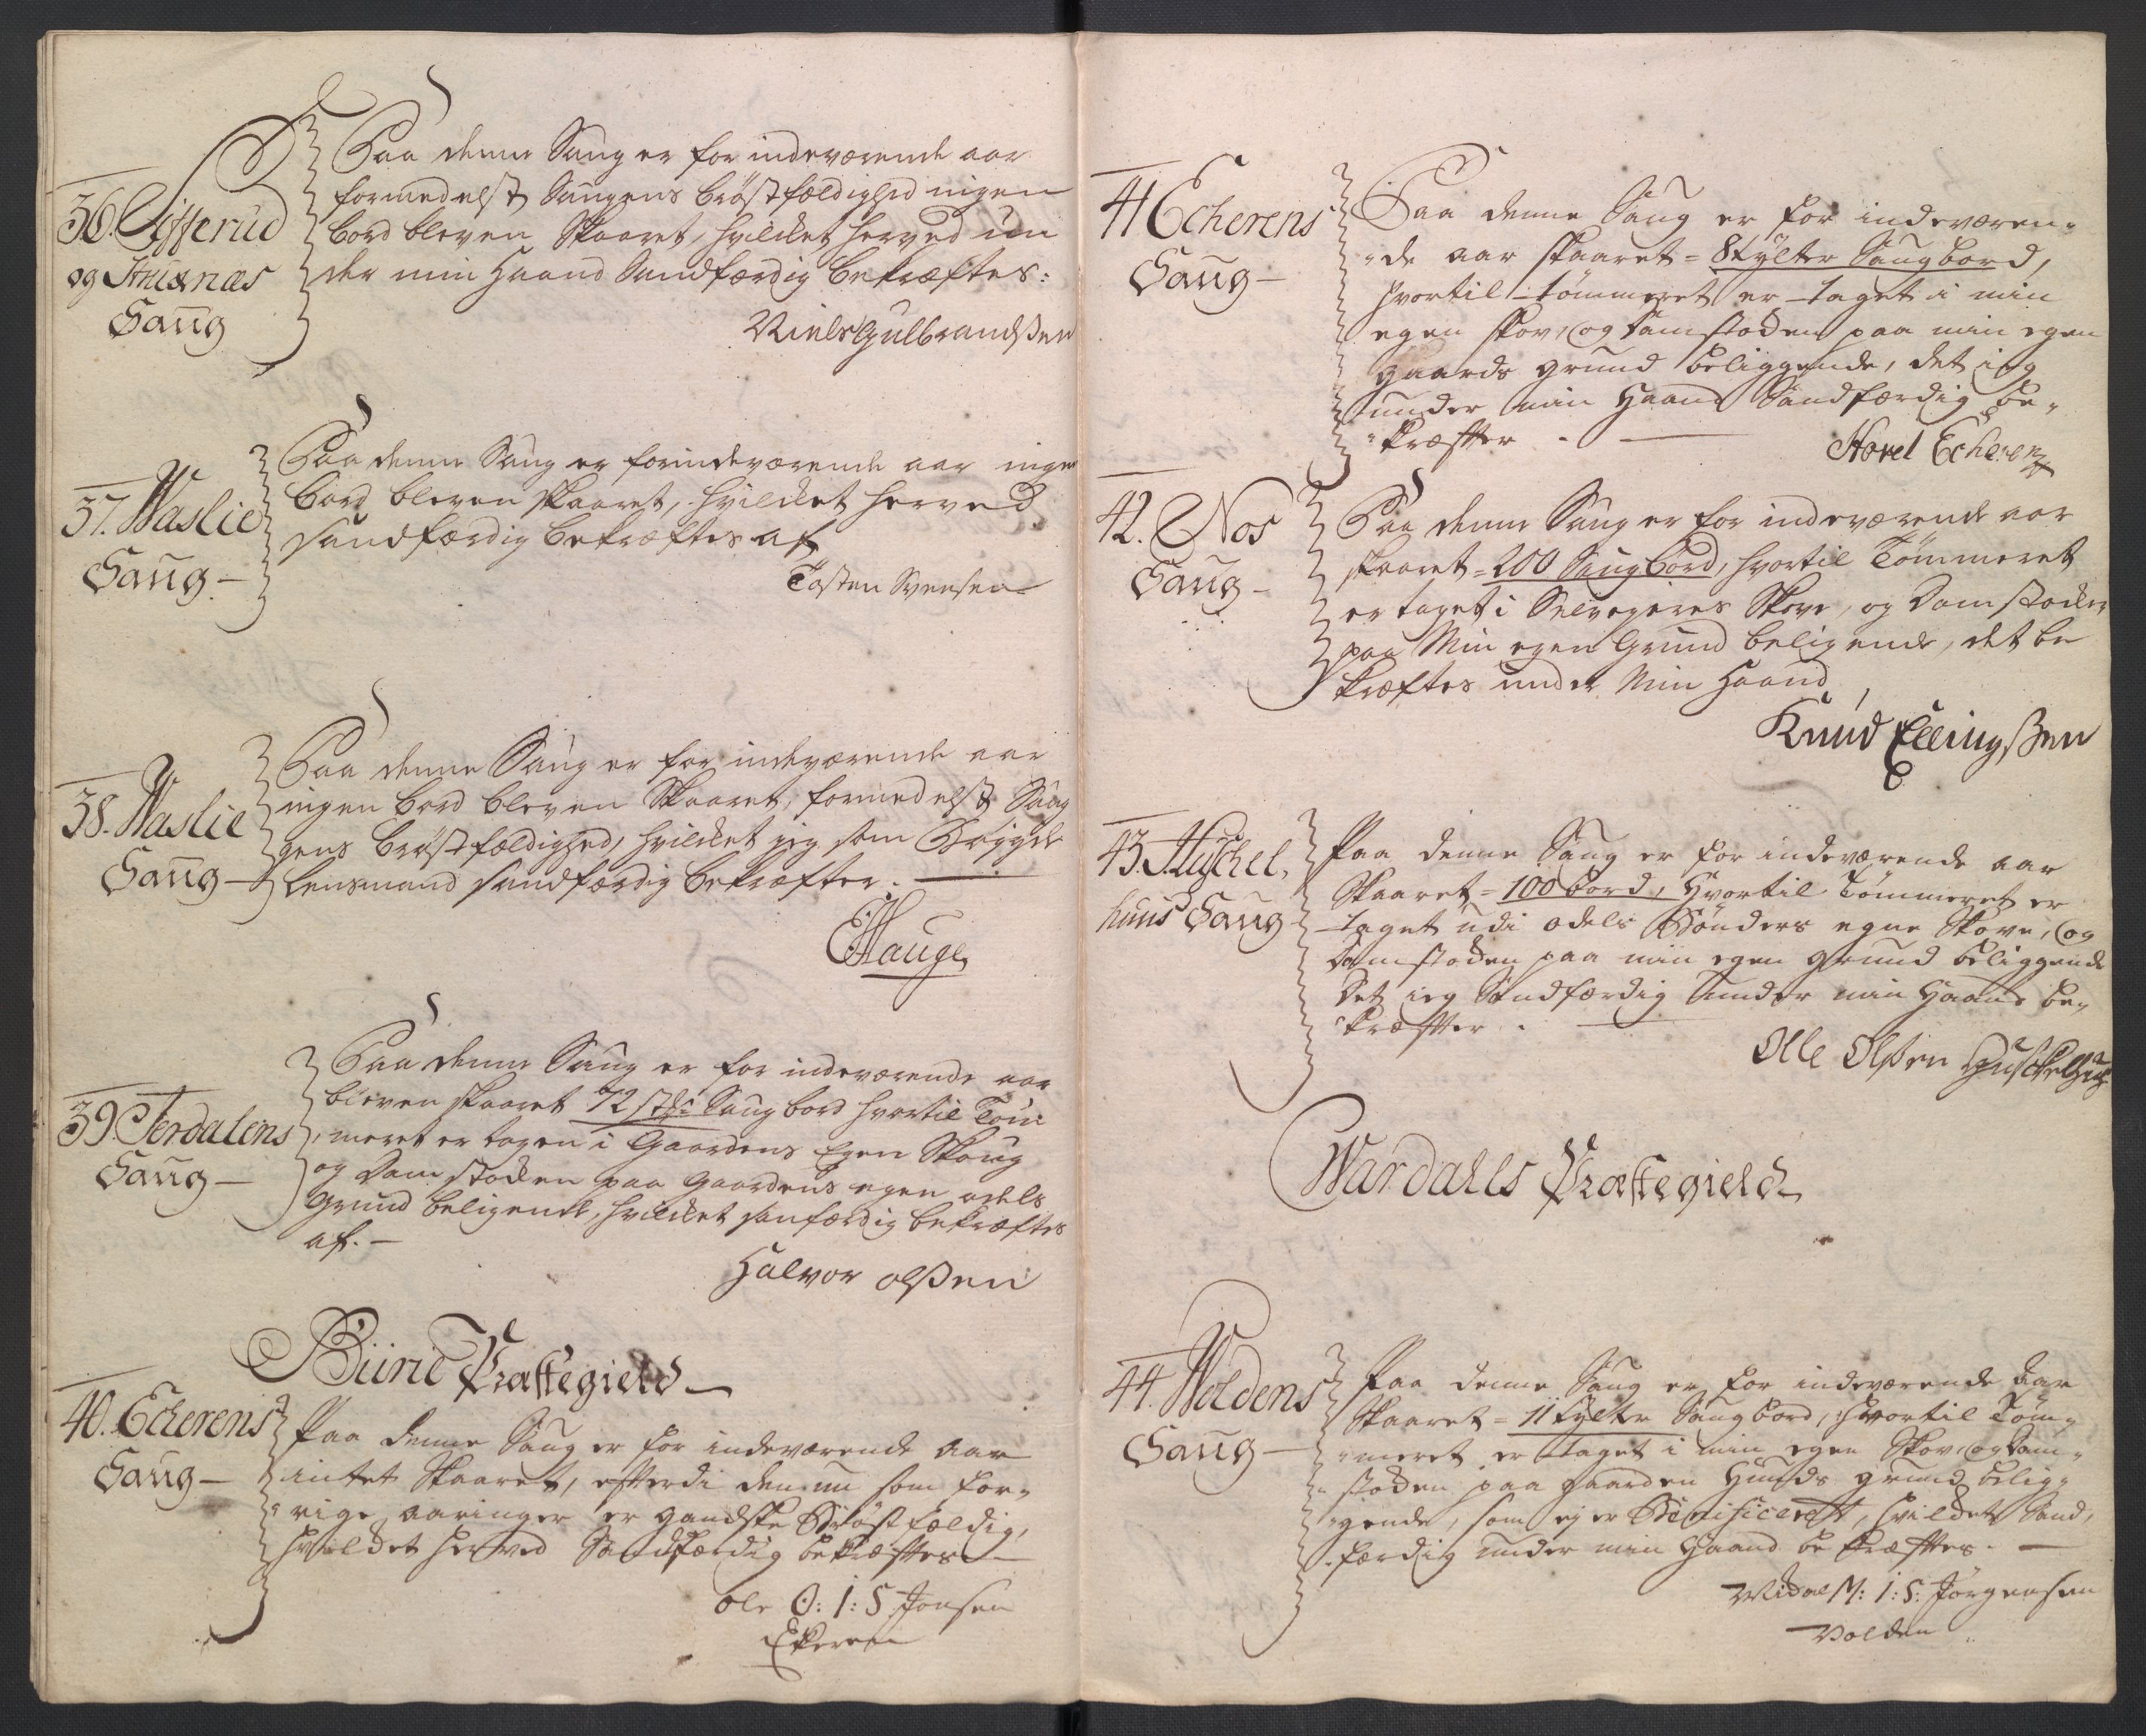 36. Efferud
og Strixnæs
Saug
Paa denne Saug er for indeværende aar
formedelst Saugens brøstfældighed ingen
bord bleven Skaaret, hvilcket herved un
der min Haand Sandfærdig bekræftes:
Niels Gulbrandssen
37. Waslie
Saug -
Paa denne Saug er for indeværende aar ingen
bord bleven skaaret, hvilcket herved
sandfærdig bekræftes af
Tosten Svensen
38. Waslie
Saug -
Paa denne Saug er for indeværende aar
ingen bord bleven Skaaret, formedelst Sau
gens brøstfældighed, hvilcket jeg som Bøigde
Lensmand sandfærdig bekræfter. -
EHauge
39. Jerdalens
Saug -
Paa denne Saug er for indeværende aar
bleven skaaret 72 st. Saug bord hvortil Tøm
meret er tagen i Gaardens Egen Skoug
og Damstocken paa Gaardens egen odels
Grund beligende, hvilcket sanfærdig bekræftes
af. -
Halvor olssen
Biirie Præstegield -
40. Echerens
Saug -
Paa denne Saug er for indeværende aar
intet Skaaret, efterdi den nu som for-
rige aaringer er gandske Brøstfældig,
hvilcket herved Sandfærdig bekræftes -
ole O: I: S Jonsen
Ekeren
41 Echerens
Saug -
Paa denne Saug er for indeværen-
de aar skaaret = 8 tylter Saugbord,
hvortil tømmeret er taget i min
egen skov, og damstocken paa min egen
gaards grund beliggende, det ieg
under min Haand Sandfærdig be-
kræfter . -
Horel Echeren
42. Nos
Saug -
Paa denne Saug er for indeværende aar
skaaret = 200 Saugbord, hvortil Tømmeret
er taget i Selvejeres Skove, og Damstocken
paa Min egen Grund beligende, det be
kræftes under Min Haand
Knud Ellingssen
43. Huschel,
huus Saug
Paa denne Saug er for indeværende aar
Skaaret = 100 bord, Hvortil Tømmeret er
taget udi odels Bønders egne Skove, og
Damstocken paa min egen grund beliggende
Det ieg Sandfærdig under min Haand be-
kræfter . -
Olle Olssen Huschelhuus
Wardahls Præstegield -
44. Woldens
Saug -
Paa denne Saug er for indeværende aar
Skaaret = 11 tylter Saugbord, hvortil Tøm-
meret er taget i min egen Skov, og Dam-
stocken paa gaarden Hunds grund belig-
gende, som ej er Benificeret, hvilcket Sand,
færdig under min Haand bekræftes. -
M: I: S: Jørgensen
Volden